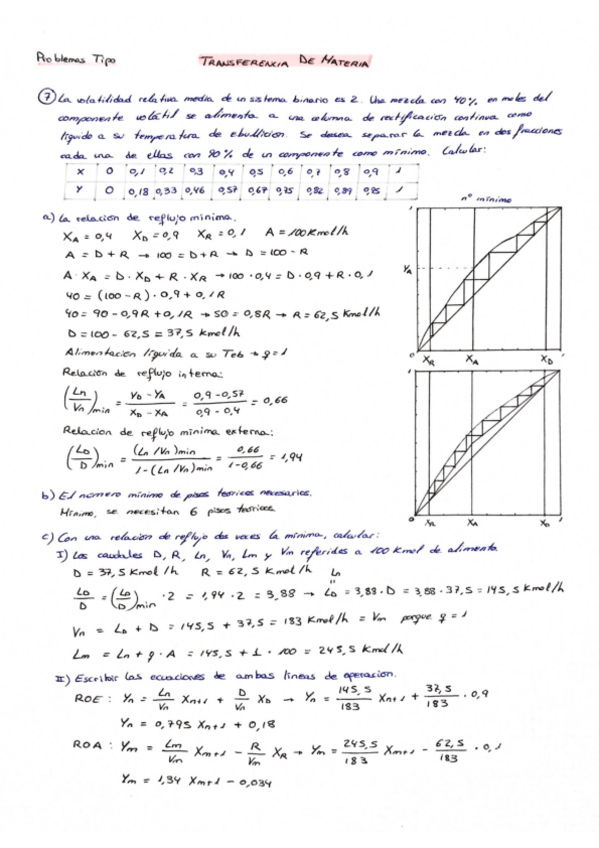 Problemas Tipo
TRANSFERENCIA DE MATERIA
7 La volatilidad relativa media de un sistema binario es 2. Una mezcla con 40% en moles del
componente volátil se alimenta a una columna de rectificación continua como
líquido a su temperatura de ebullición. Se desea separar la mezcla en dos fracciones
cada una de ellas con 90% de un componente como mínimo. Calcular:
X 0 0,1 0,2 0,3 0,4 0,5 0,6 0,7 0,8 0,9 1
Y 0 0,18 0,33 0,46 0,57 0,67 0,75 0,82 0,89 0,95 1
nº mínimo
a) La relación de reflujo mínima.
XA = 0,4 XD = 0,9 XR = 0,1 A = 100 Kmol/h
A = D + R → 100 = D + R → D = 100 - R
A · XA = D · XD + R · XR → 100 · 0,4 = D · 0,9 + R · 0,1
40 = (100 - R) · 0,9 + 0,1R
40 = 90 - 0,9R + 0,1R → 50 = 0,8R → R = 62,5 Kmol/h
D = 100 - 62,5 = 37,5 Kmol/h
Alimentación líquida a su Teb → q = 1
Relación de reflujo interna:
(Ln/Vn)min = (YD - YA)/(XD - XA) = (0,9 - 0,57)/(0,9 - 0,4) = 0,66
Relación de reflujo mínima externa:
(LD/D)min = (Ln/Vn)min/(1 - (Ln/Vn)min) = 0,66/(1 - 0,66) = 1,94
YA
XR XA XD
XR XA XD
b) El número mínimo de pisos teóricos necesarios.
Mínimo, se necesitan 6 pisos teóricos
c) Con una relación de reflujo dos veces la mínima, calcular:
I) Los caudales D, R, Ln, Vn, Lm y Vm referidos a 100 Kmol de alimento.
D = 37,5 Kmol/h R = 62,5 Kmol/h Ln
LD/D = (LD/D)min · 2 = 1,94 · 2 = 3,88 → LD = 3,88 · D = 3,88 · 37,5 = 145,5 Kmol/h
Vn = LD + D = 145,5 + 37,5 = 183 Kmol/h = Vm porque q = 1
Lm = Ln + q · A = 145,5 + 1 · 100 = 245,5 Kmol/h
II) Escribir las ecuaciones de ambas líneas de operación.
ROE: Yn = Ln/Vn Xn+1 + D/Vn XD → Yn = 145,5/183 Xn+1 + 37,5/183 · 0,9
Yn = 0,795 Xn+1 + 0,18
ROA: Ym = Lm/Vm Xm+1 - R/Vm XR → Ym = 245,5/183 Xm+1 - 62,5/183 · 0,1
Ym = 1,34 Xm+1 - 0,034